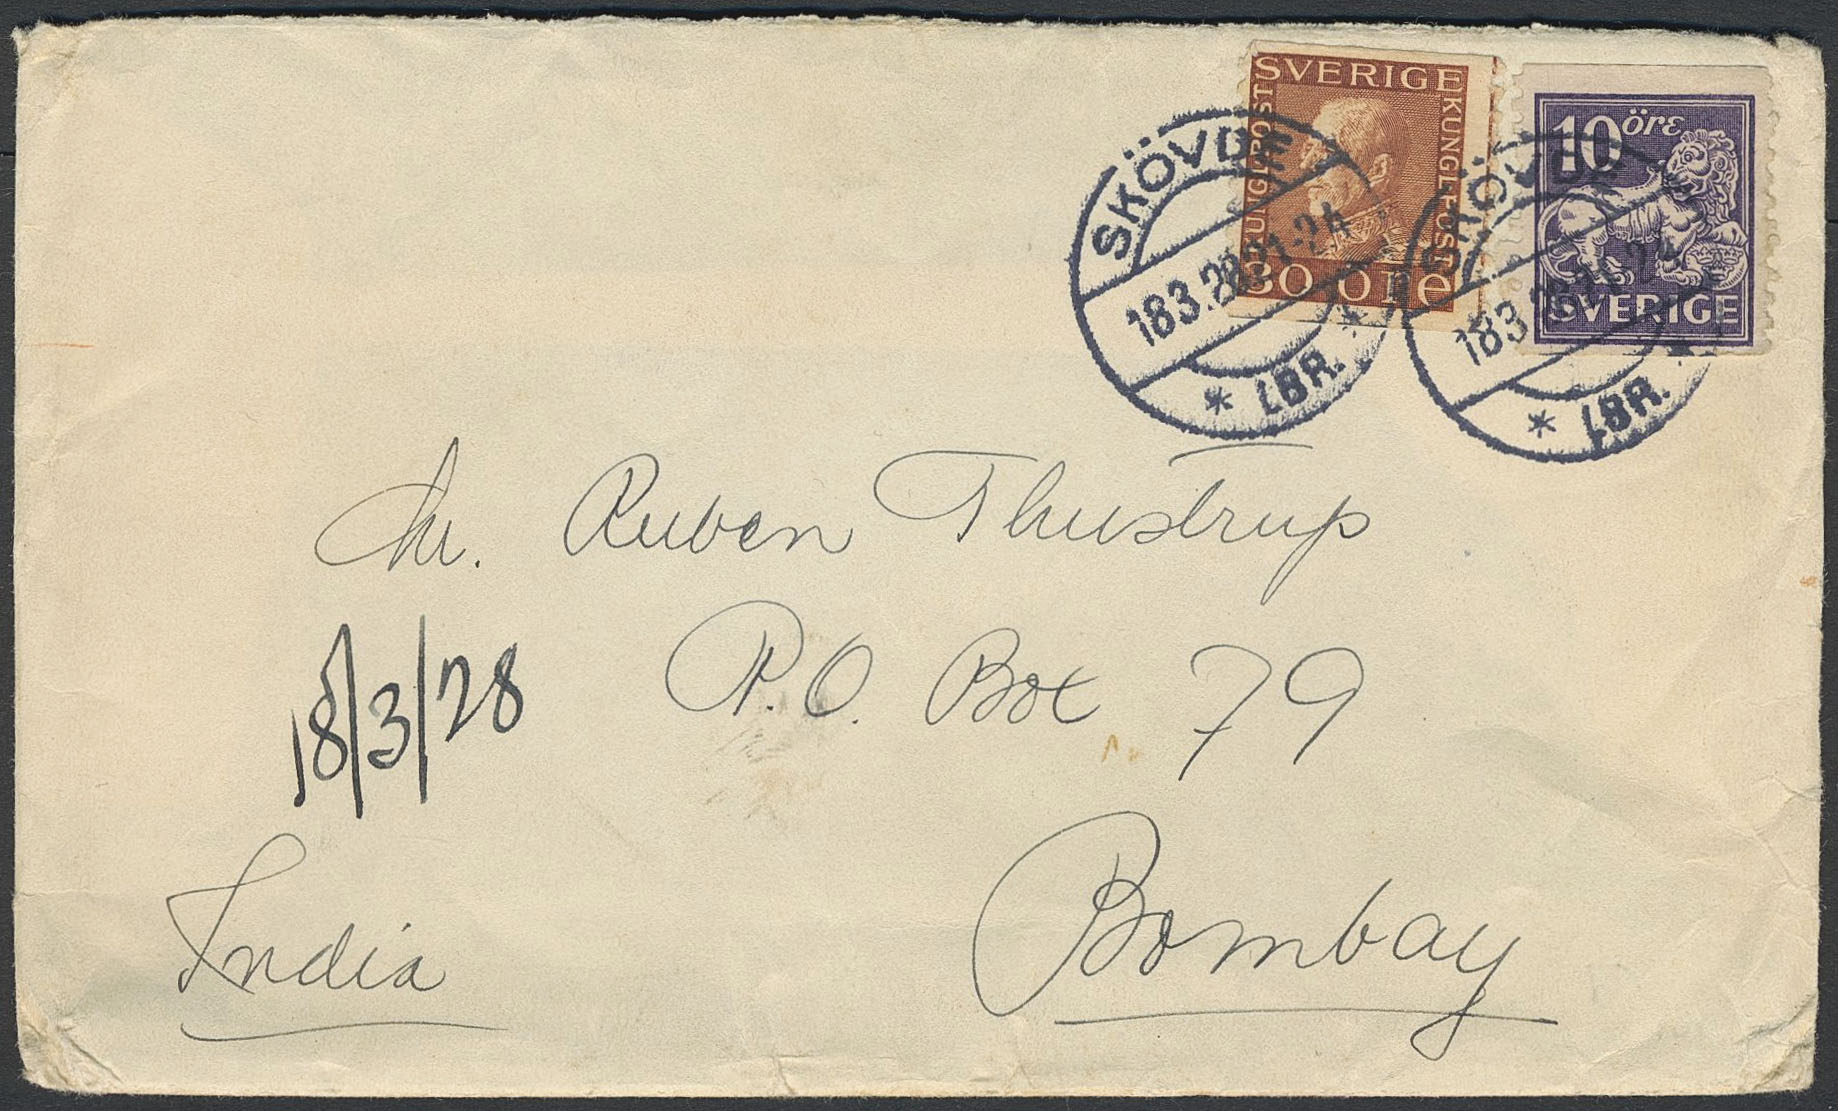 SVERIGE
KUNGL POST
KUNGL POST
30 ÖRE
10 öre
SVERIGE
SKÖVDE
18 3.28.21-24
* LBR. *
SKÖVDE
18 3
* LBR. *
Mr. Ruben Thustrup
P.O. Box 79
18/3/28
India
Bombay